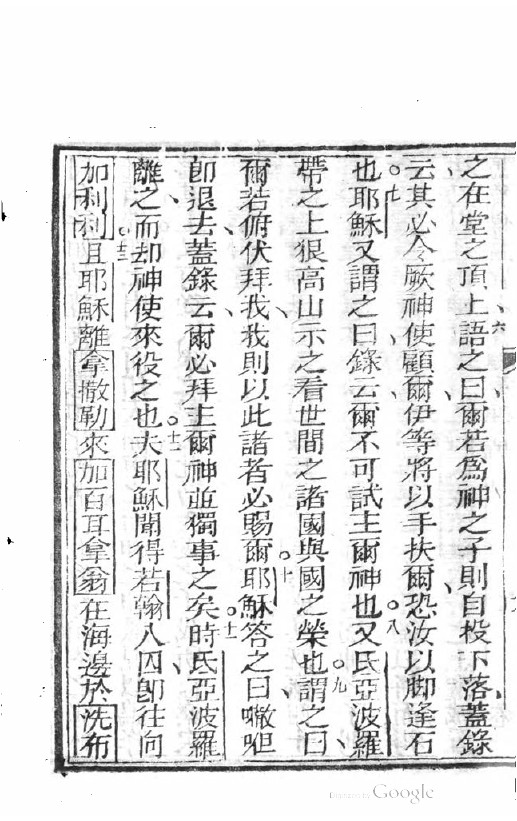 之在堂之頂上語之曰爾若為神之子則自投下落蓋錄
云其必令厥神使顧爾伊等將以手扶爾恐汝以脚逢石
也耶穌又謂之曰錄云爾不可試主爾神也又氐亞波羅
帶之上狠高山示之看世間之諸國與國之榮也謂之曰
爾若俯伏拜我我則以此諸者必賜爾耶穌答之曰㘔呾
即退去蓋錄云爾必拜主爾神並獨事之矣時氐亞波羅
離之而却神使來役之也夫耶穌聞得若翰入囚即往向
加利利且耶穌離拿撒勒來加百耳拿翁在海邊於洗布
六
七
八
九
十
十一
十二
十三
Digitized by Google